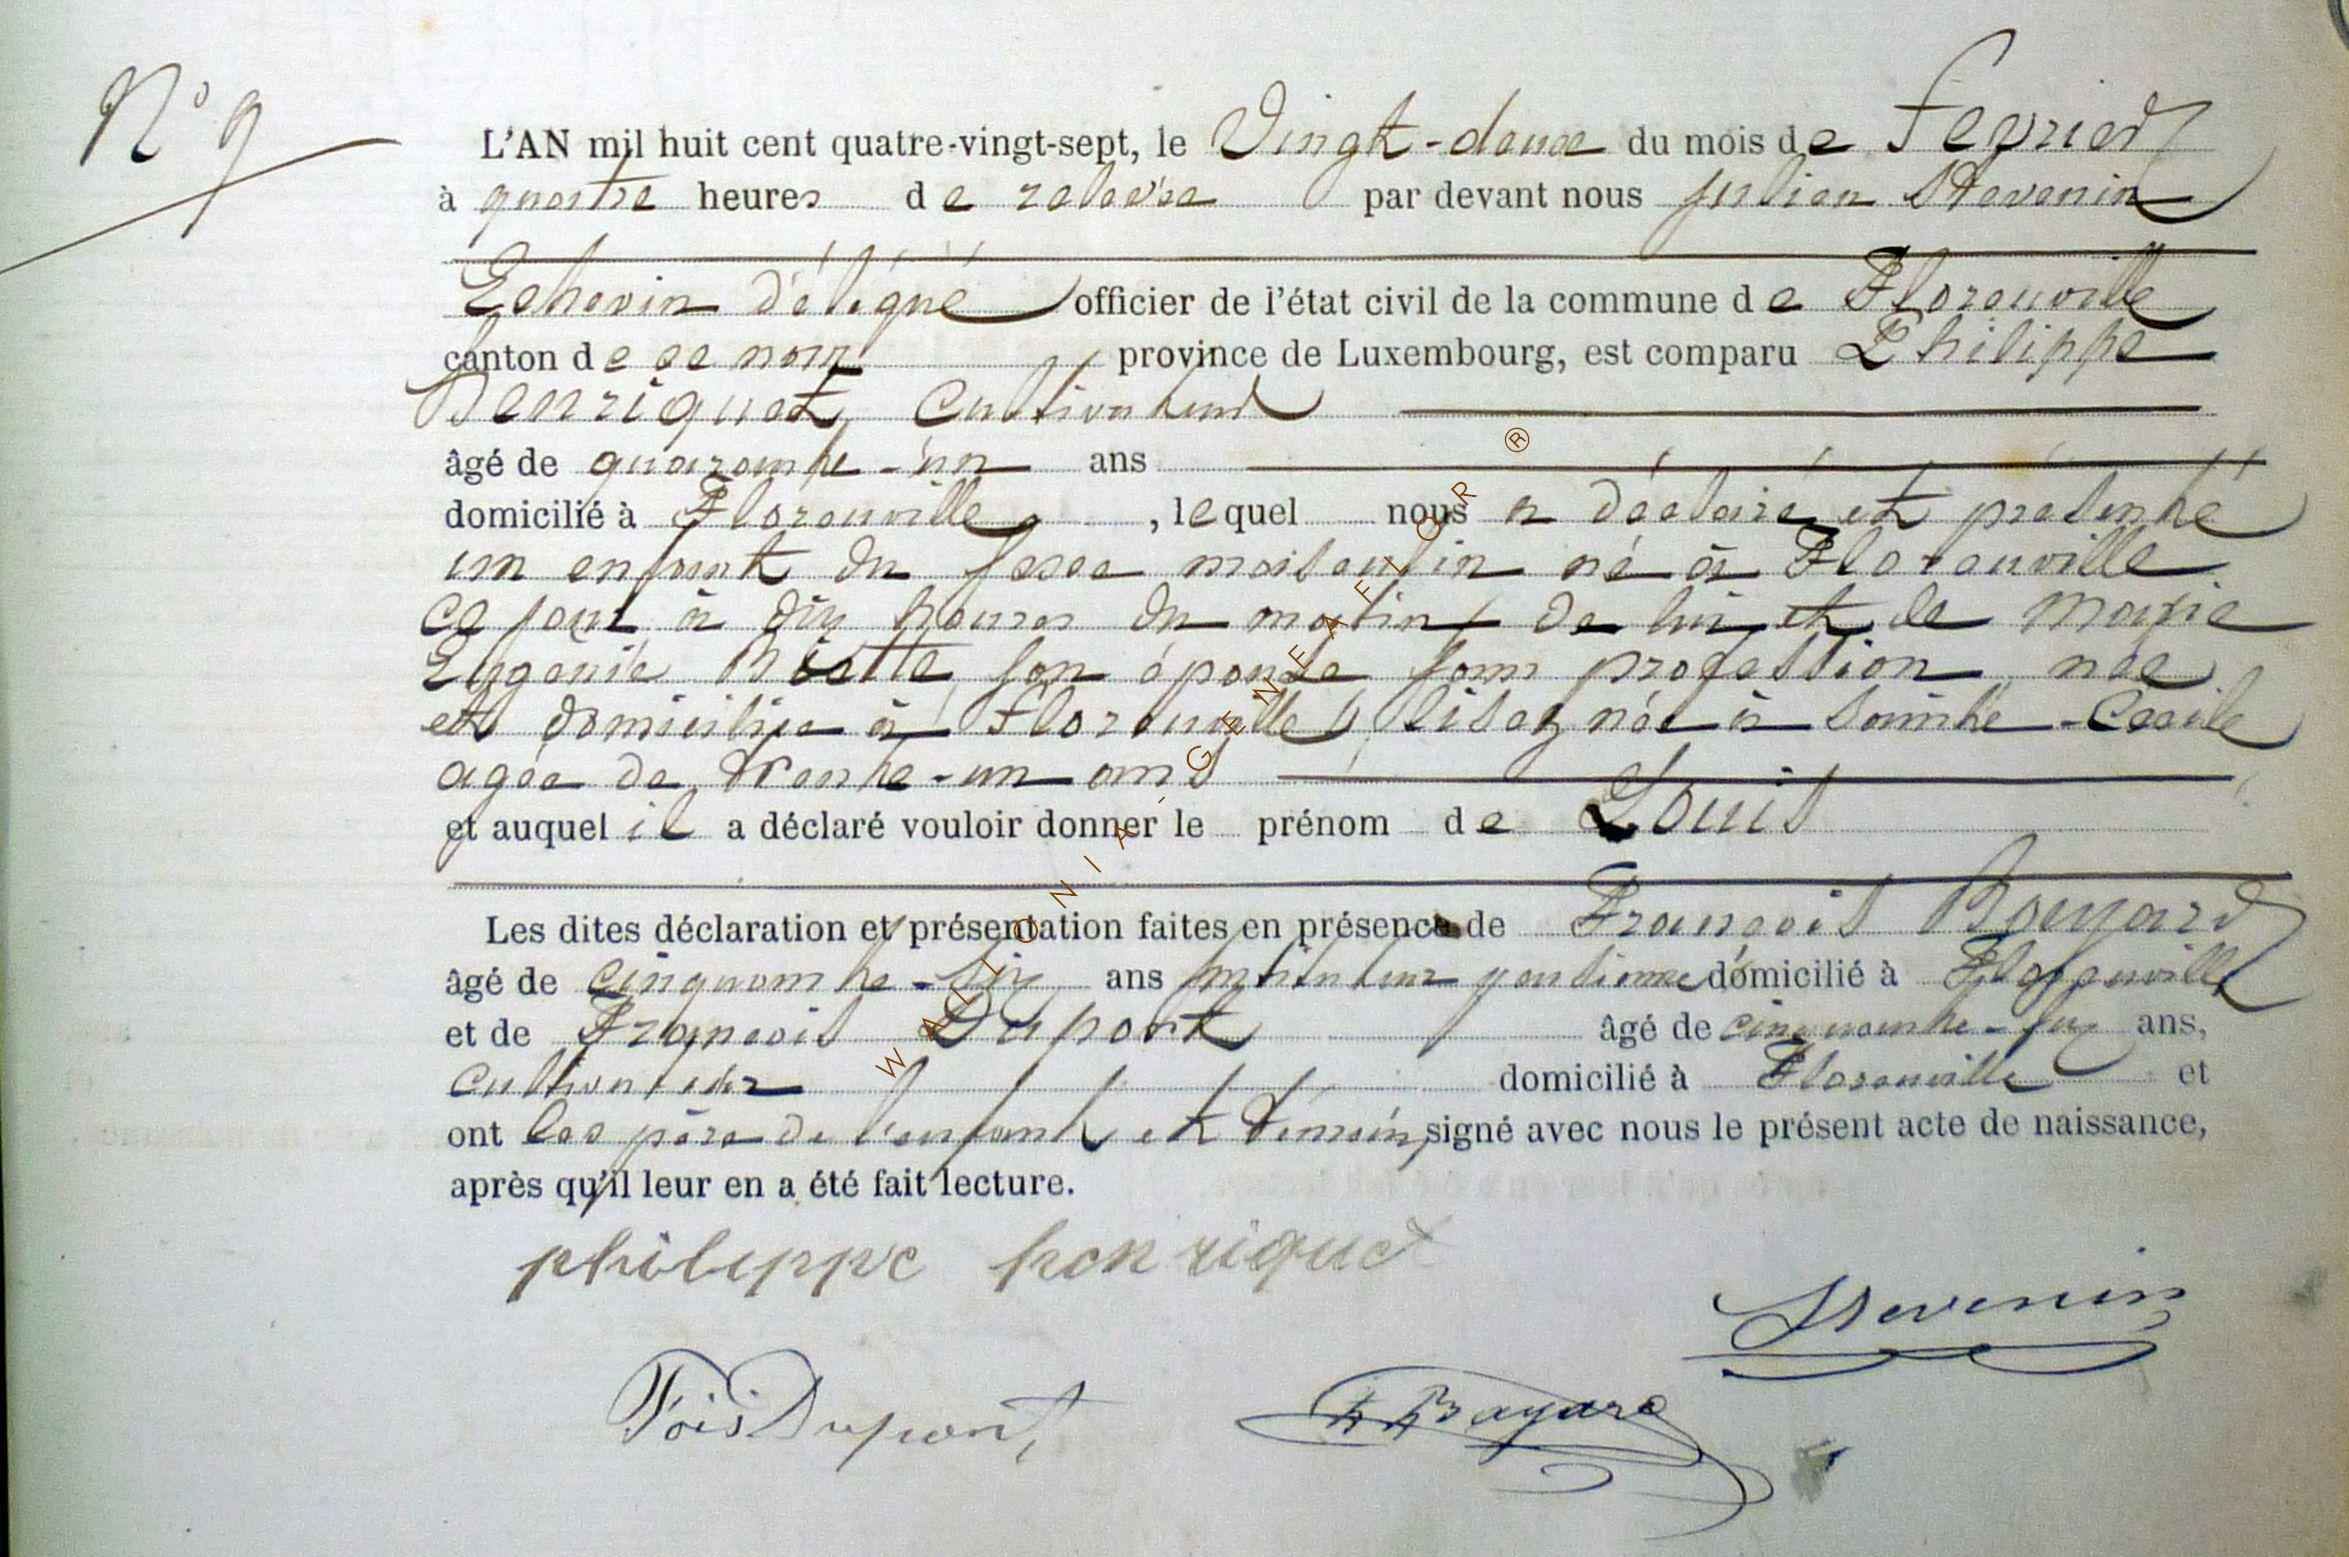 N° 9
L'AN mil huit cent quatre-vingt-sept, le Vingt-deux du mois de Fevrier
à quatre heures de relevée par devant nous Julien Stevenin
Echevin délégué officier de l'état civil de la commune de Florenville
canton de ce nom province de Luxembourg, est comparu Philippe
Henriquet Cultivateur
âgé de quarante-un ans
domicilié à Florenville, lequel nous a déclaré et présenté
un enfant du sexe masculin né à Florenville
ce jour à dix heures du matin de lui et de Marie
Eugénie son épouse sans profession née
et domiciliée à Florenville, lisez née à Sainte-Cecile
agée de trente-un ans
et auquel il a déclaré vouloir donner le prénom de Louis
Les dites déclaration et présentation faites en présence de François Bayard
âgé de cinquante-six ans domicilié à Florenville
et de François Dupont âgé de cinquante-six ans,
cultivateur domicilié à Florenville et
ont les père de l'enfant et témoins signé avec nous le présent acte de naissance,
après qu'il leur en a été fait lecture.
philippe henriquet
Stevenin
Fois Dupont
Bayard
WALLONIA - GENEAFLOR ®